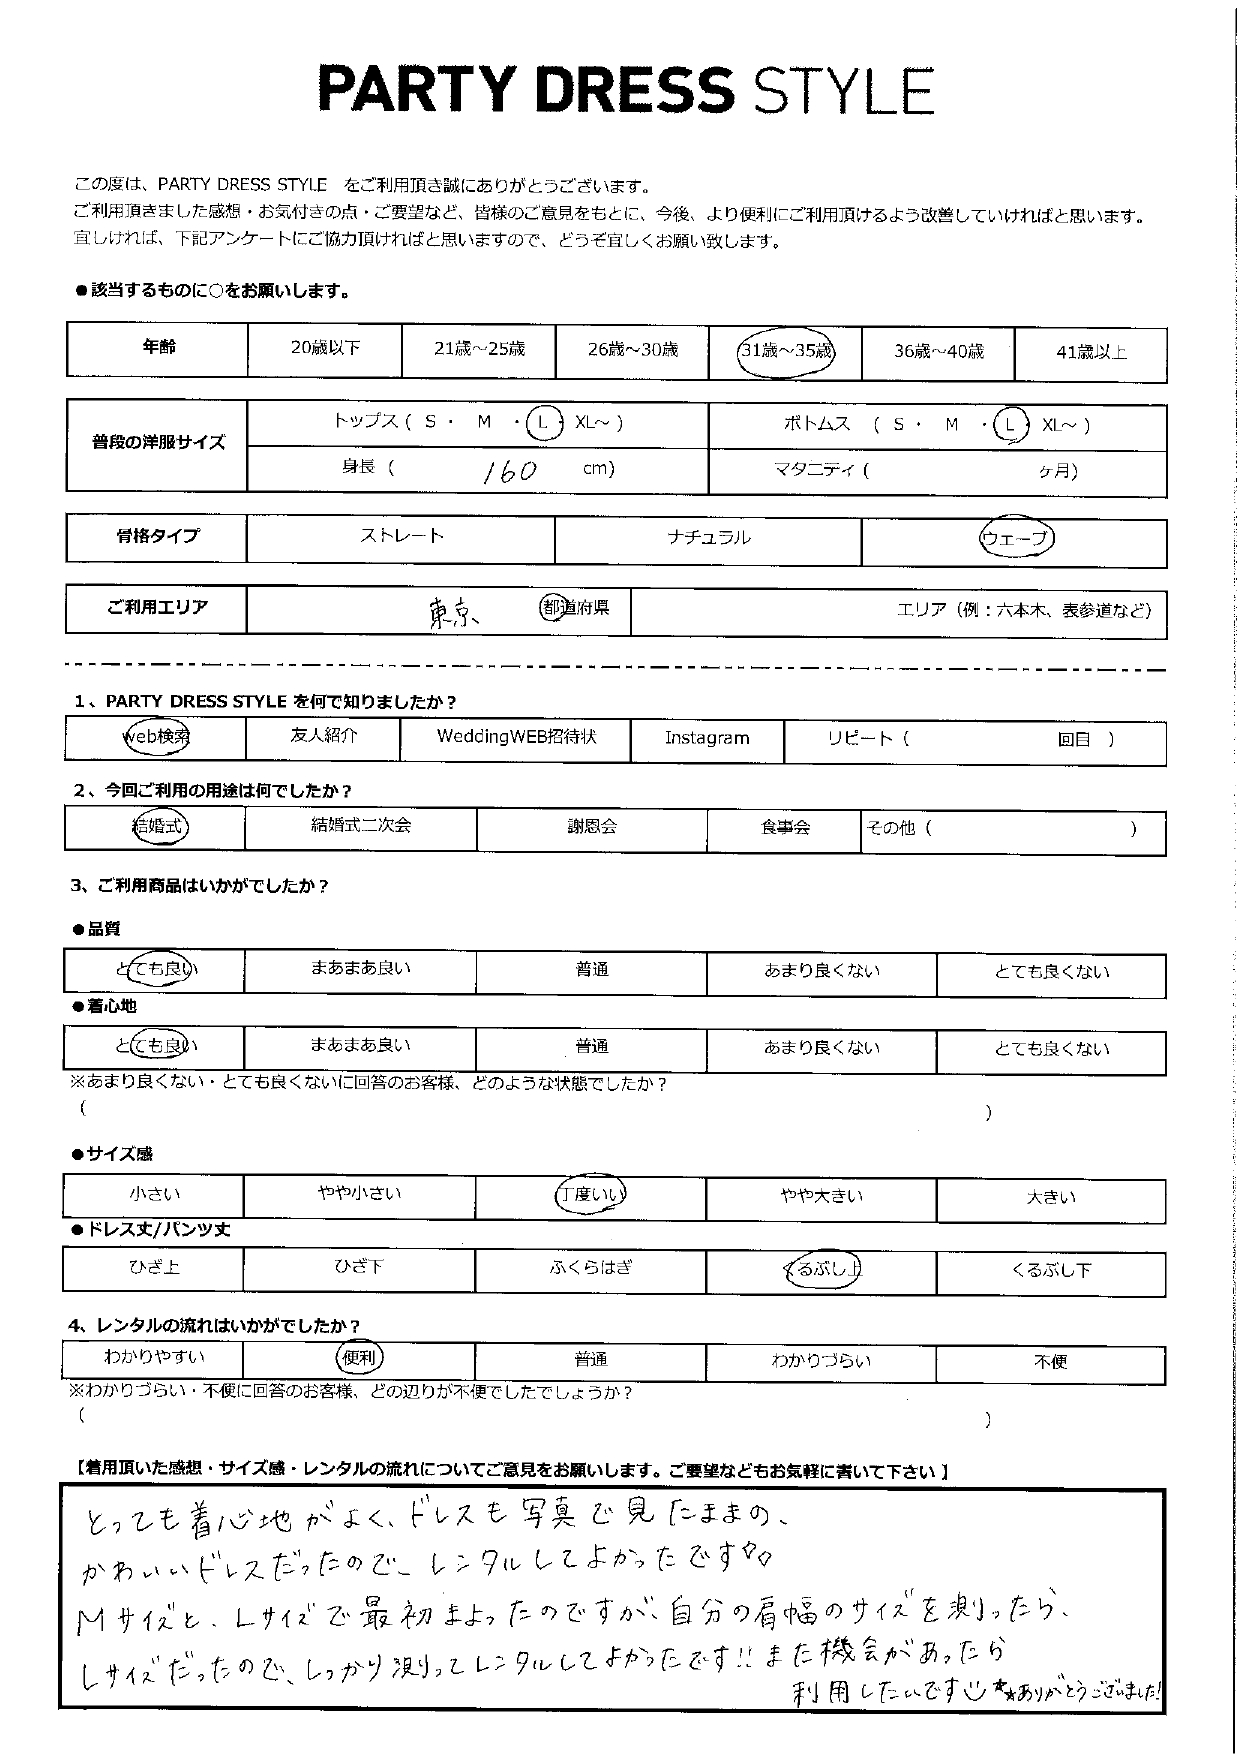 PARTY DRESS STYLE
この度は、PARTY DRESS STYLE をご利用頂き誠にありがとうございます。
ご利用頂きました感想・お気付きの点・ご要望など、皆様のご意見をもとに、今後、より便利にご利用頂けるよう改善していければと思います。
宜しければ、下記アンケートにご協力頂ければと思いますので、どうぞ宜しくお願い致します。
●該当するものに○をお願いします。
年齢 20歳以下 21歳～25歳 26歳～30歳 31歳～35歳 36歳～40歳 41歳以上
普段の洋服サイズ トップス ( S ・ M ・ L ・ XL～ ) ボトムス ( S ・ M ・ L ・ XL～ )
身長 ( 160 cm) マタニティ ( ヶ月)
骨格タイプ ストレート ナチュラル ウェーブ
ご利用エリア 東京、 都道府県 エリア（例：六本木、表参道など）
1、PARTY DRESS STYLE を何で知りましたか？
web検索 友人紹介 WeddingWEB招待状 Instagram リピート ( 回目 )
2、今回ご利用の用途は何でしたか？
結婚式 結婚式二次会 謝恩会 食事会 その他 ( )
3、ご利用商品はいかがでしたか？
●品質
とても良い まあまあ良い 普通 あまり良くない とても良くない
●着心地
とても良い まあまあ良い 普通 あまり良くない とても良くない
※あまり良くない・とても良くないに回答のお客様、どのような状態でしたか？
( )
●サイズ感
小さい やや小さい 丁度いい やや大きい 大きい
●ドレス丈/パンツ丈
ひざ上 ひざ下 ふくらはぎ くるぶし上 くるぶし下
4、レンタルの流れはいかがでしたか？
わかりやすい 便利 普通 わかりづらい 不便
※わかりづらい・不便に回答のお客様、どの辺りが不便でしたでしょうか？
( )
【着用頂いた感想・サイズ感・レンタルの流れについてご意見をお願いします。ご要望などもお気軽に書いて下さい】
とっても着心地がよく、ドレスも写真で見たままの、
かわいいドレスだったので、レンタルしてよかったです♡♡
Mサイズと、Lサイズで最初まよったのですが、自分の肩幅のサイズを測ったら、
Lサイズだったので、しっかり測ってレンタルしてよかったです!!また機会があったら
利用したいです☺★★ありがとうございました!